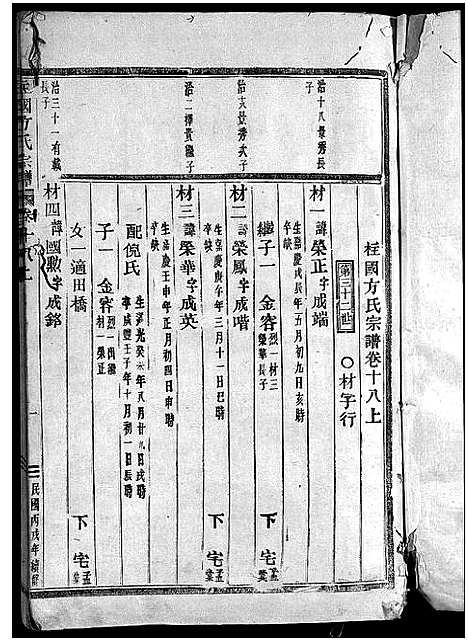 桂國方氏宗譜卷十八上
第三十二世 ○材字行
治十八景秀長子
材一諱榮正字成端
生嘉慶戊辰年五月初九日亥時
缺
繼子一 金容 烈一材三榮華長子
下宅 孟棠
治亥景秀次子
材二諱榮鳳字成喈
生嘉慶庚午年三月十一日巳時
缺
下宅 孟棠
治二
材三諱榮華字成英
生嘉慶壬申年正月初四日申時
缺
配倪氏
生道光癸未年八月廿九日戌時
卒咸豐壬子年十月初一日辰時
子一 金容 烈一出繼材一榮正
女一適田橋
下宅 孟棠
治三十一有載長子
材四諱國勲字成銘
國方氏宗譜
一
民國丙戌年續